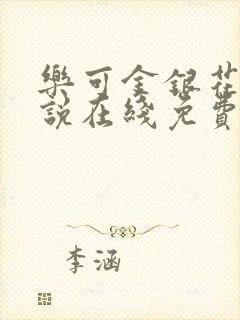 樂可金銀花
說在綫免費
李涵